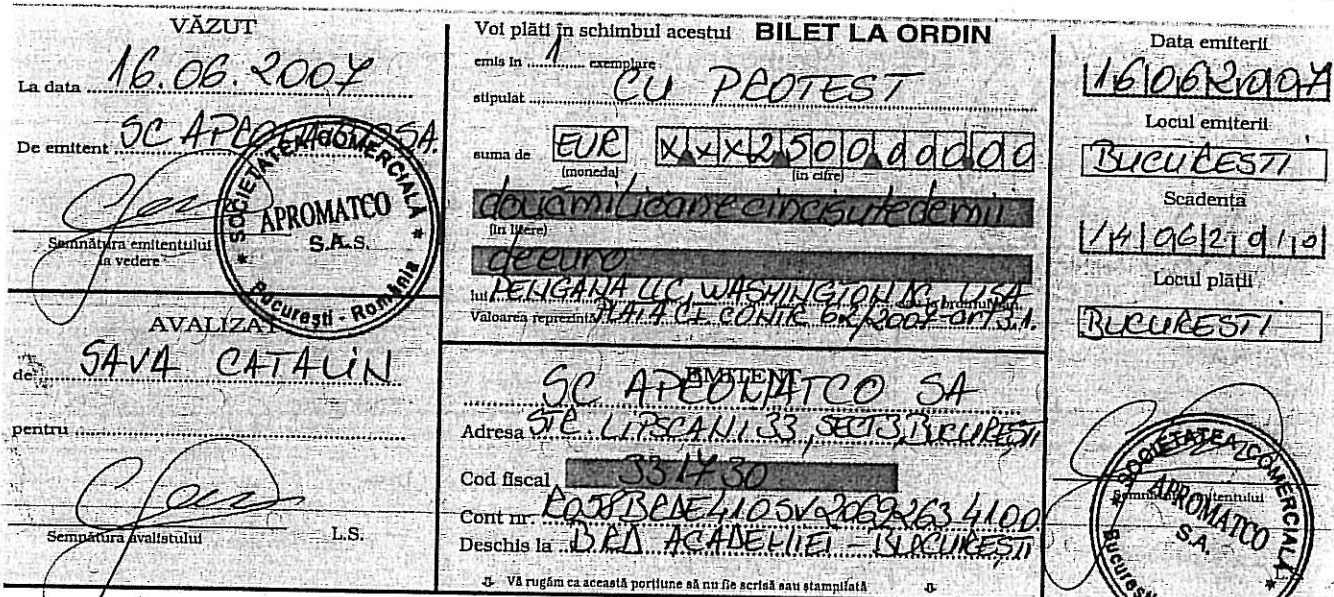 VĂZUT
La data 16.06.2007
De emitent SC APROMATCO SA.
Semnătura emitentului
la vedere
SOCIETATEA COMERCIALĂ
APROMATCO
S.A.
București - România
L.S.
AVALIZAT
de SAVA CATALIN
pentru
Semnătura avalistului L.S.
Voi plăti în schimbul acestui BILET LA ORDIN
emis în 1 exemplare
stipulat CU PROTEST
suma de EUR XXX250000000
(moneda) (în cifre)
douămilioanecincisutedemii
(în litere)
deeuro
lui PENGANA LLC, WASHINGTON USA
Valoarea reprezintă PLATA CF. CONTR 62/2007-art 3.1.
EMITENT
SC APROMATCO SA
Adresa STR. LIPSCANI 33, SECT 3, BUCURESTI
Cod fiscal 331730
Cont nr. RO58BRDE410SV20692634100
Deschis la BRD ACADEMIEI - BUCURESTI
Vă rugăm ca această porțiune să nu fie scrisă sau ștampilată
Data emiterii
16062007
Locul emiterii
BUCURESTI
Scadența
14062010
Locul plății
BUCURESTI
Semnătura emitentului
SOCIETATEA COMERCIALĂ
APROMATCO
S.A.
București